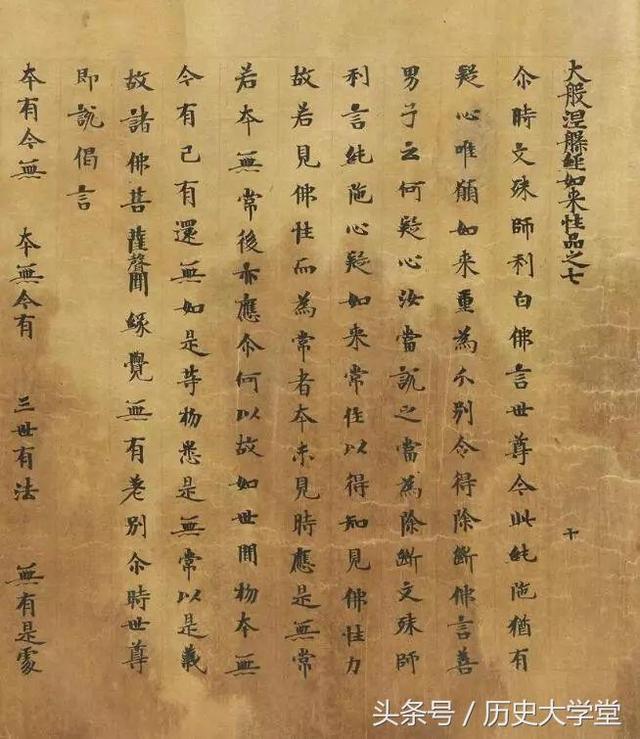 大般涅槃經如來性品之七
十
尒時文殊師利白佛言世尊今此純陁猶有
疑心唯願如來重為分別令得除斷佛言善
男子云何疑心汝當說之當為除斷文殊師
利言純陁心疑如來常住以得知見佛性力
故若見佛性而為常者本未見時應是無常
若本無常後亦應尒何以故如世間物本無
今有已有還無如是等物悉是無常以是義
故諸佛菩薩聲聞緣覺無有差別尒時世尊
即說偈言
本有今無 本無今有 三世有法 無有是處
头条号 / 历史大学堂